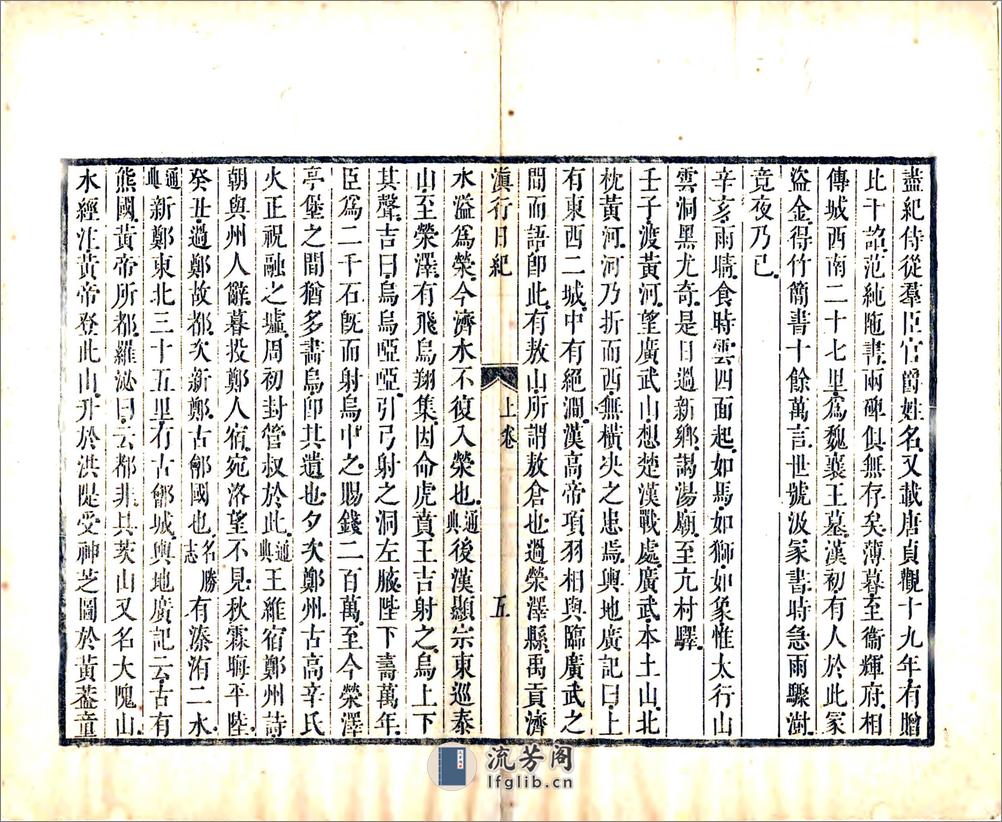 盡紀侍從羣臣官爵姓名又載唐貞觀十九年有贈
比干詔范純陁書兩碑俱無存矣薄暮至衞輝府相
傳城西南二十七里爲魏襄王墓漢初有人於此冢
盜金得竹簡書十餘萬言世號汲冢書時急雨驟澍
竟夜乃已
辛亥雨晴食時雲四面起如馬如獅如象惟太行山
雲洞黑尤奇是日過新鄉謁湯廟至亢村驛
壬子渡黃河望廣武山想楚漢戰處廣武本土山北
枕黃河河乃折而西無橫決之患焉輿地廣記曰上
有東西二城中有絕澗漢高帝項羽相與臨廣武之
間而語卽此有敖山所謂敖倉也過滎澤縣禹貢濟
滇行日紀 上卷 五
水溢爲滎今濟水不復入滎也通典後漢顯宗東巡泰
山至滎澤有飛烏翔集因命虎賁王吉射之烏上下
其聲吉曰烏烏啞啞引弓射之洞左腋陛下壽萬年
臣爲二千石旣而射烏中之賜錢二百萬至今滎澤
亭堡之間猶多畵烏卽其遺也夕次鄭州古高辛氏
火正祝融之墟周初封管叔於此通典王維宿鄭州詩
朝與州人辭暮投鄭人宿宛洛望不見秋霖晦平陸
癸丑過鄭故都次新鄭古鄶國也名勝志有溱洧二水
通典新鄭東北三十五里有古鄶城輿地廣記云古有
熊國黃帝所都羅泌曰云都非具茨山又名大隗山
水經注黃帝登此山升於洪隄受神芝圖於黃葢童
流芳阁
lfglib.cn